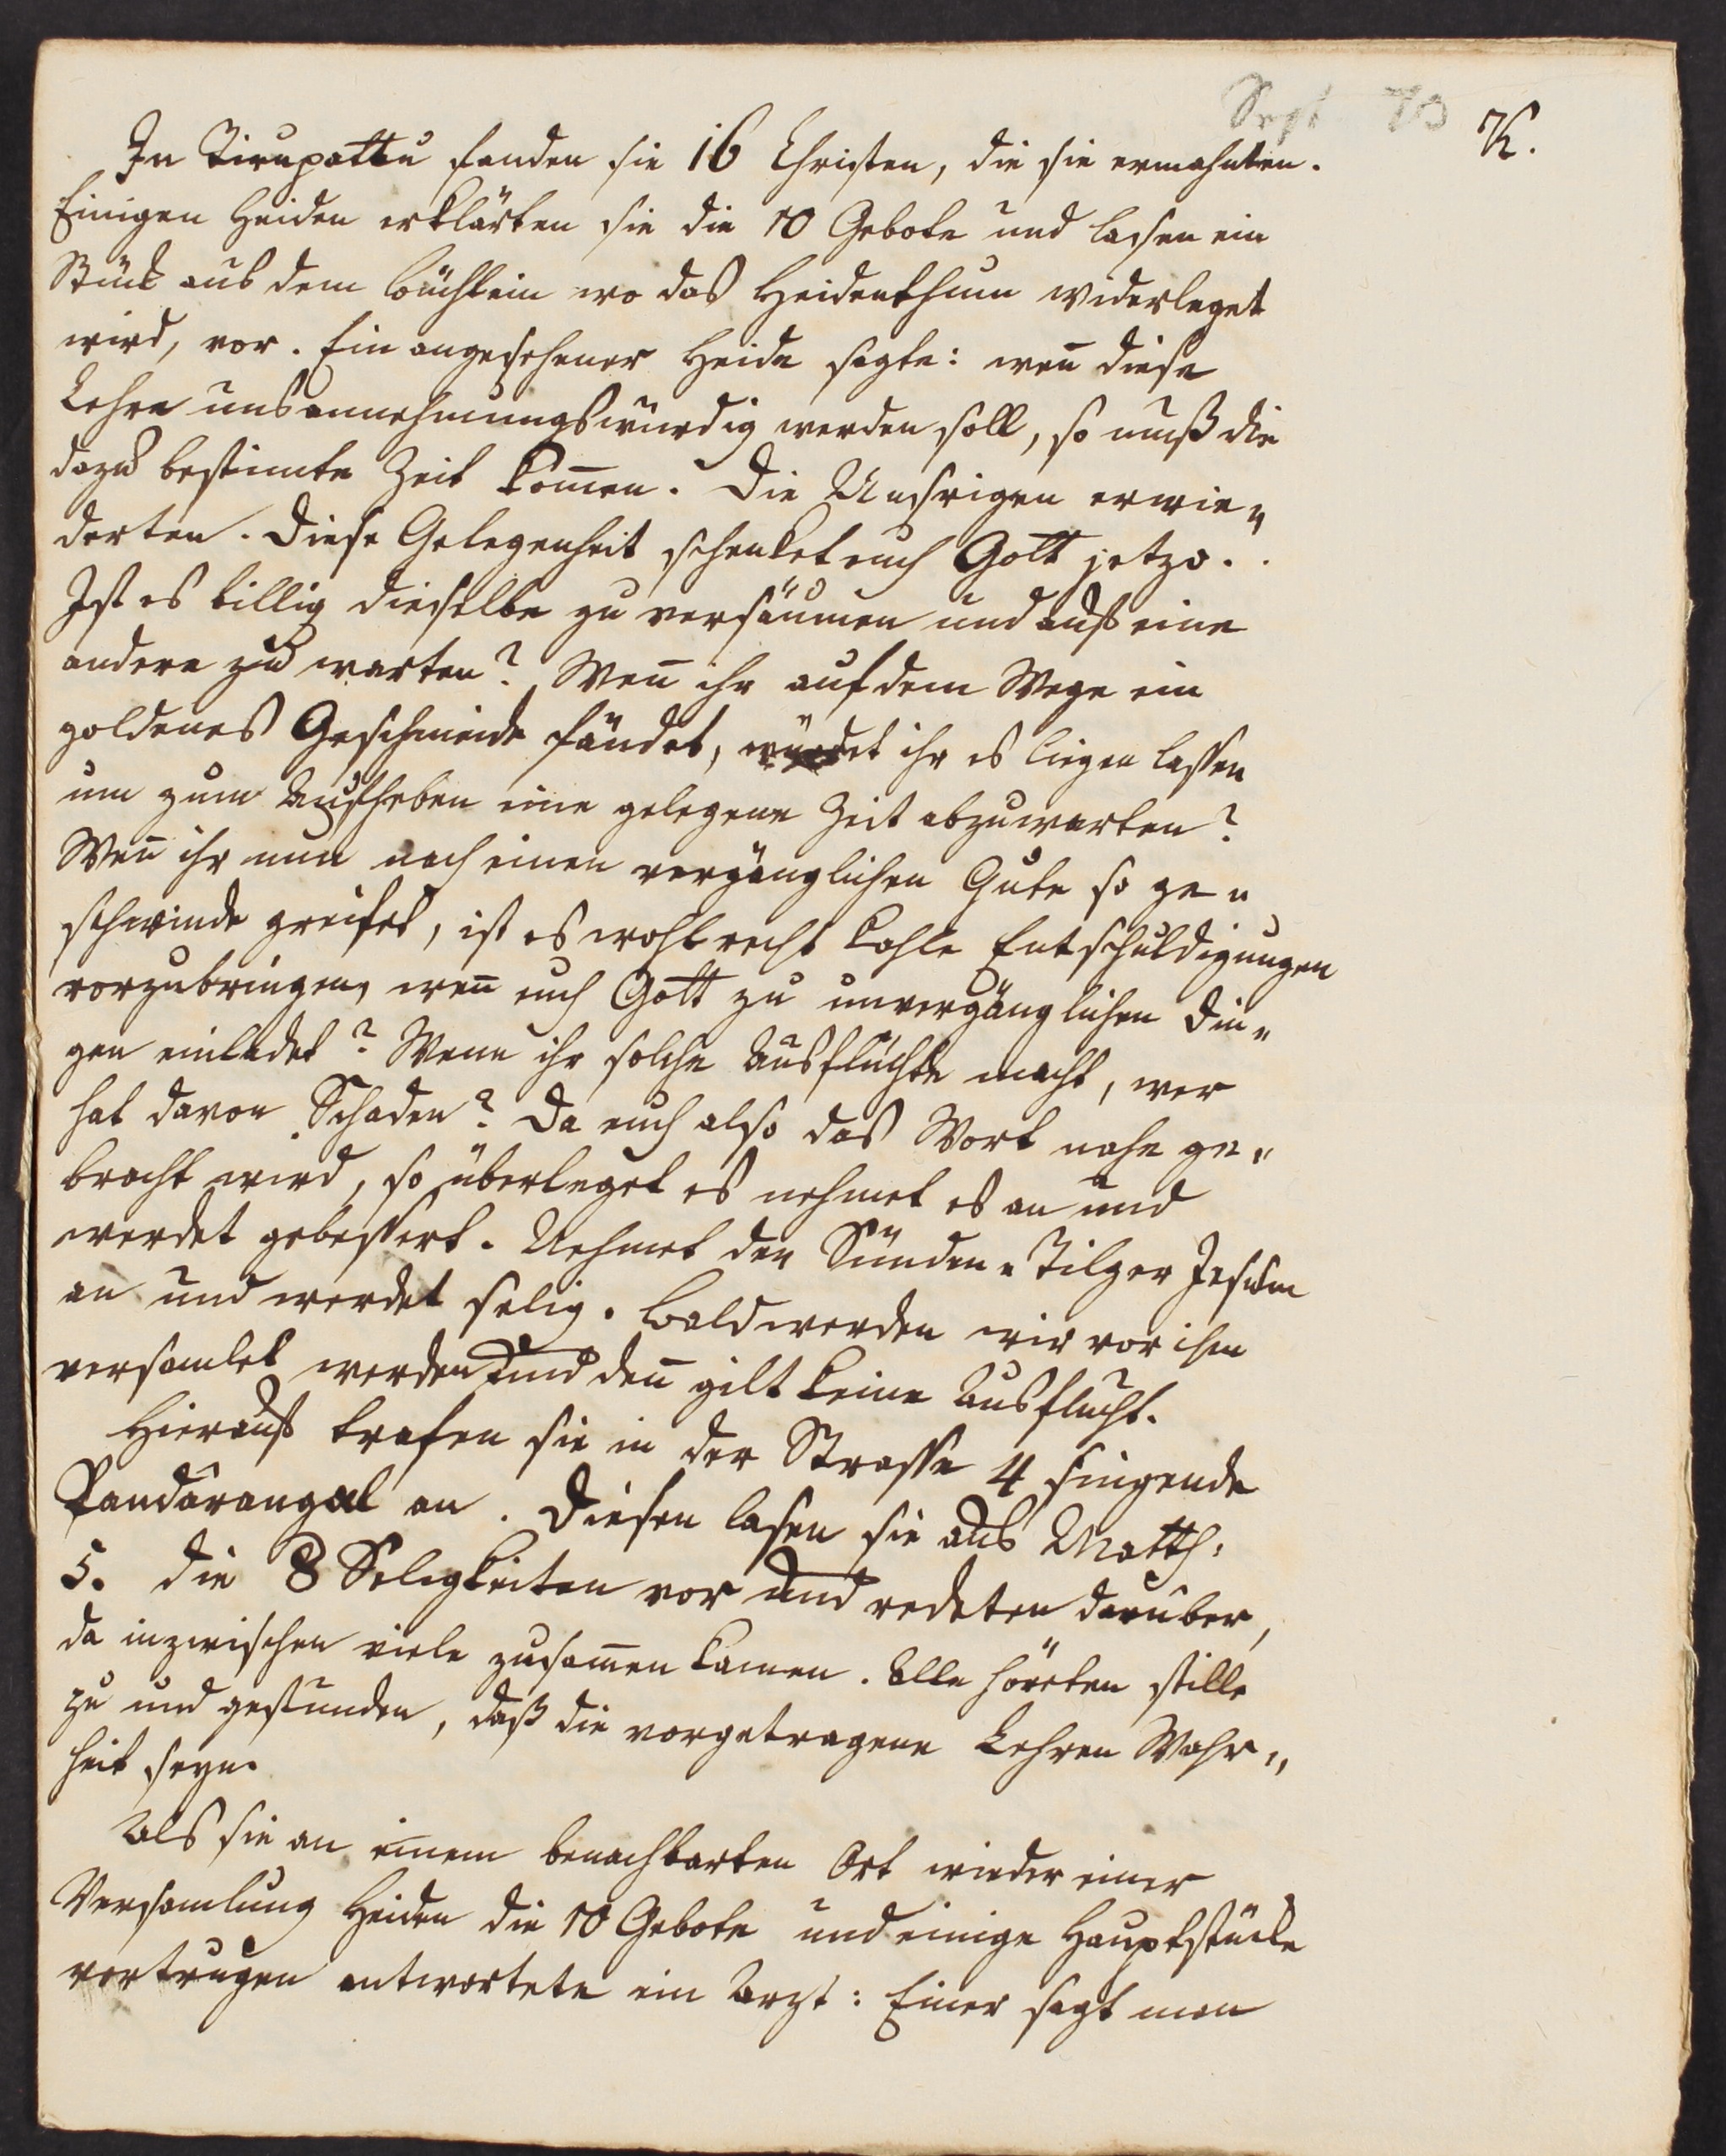 Sept 73
K.
In Tirupattu fanden sie 16 Christen, die sie ermahnten.
Einigen Heiden erklärten sie die 10 Gebote und lasen ein
Stück aus dem büchlein wo das Heidenthum widerleget
wird, vor. Ein angesehener Heide sagte: weñ diese
Lehre uns annehmungswürdig werden soll, so muß die
dazu bestimte Zeit kom̃en. Die Unsrigen erwie„
derten. Diese Gelegenheit schenket euch Gott jetzo.
Ist es billig dieselbe zu versäumen und auf eine
andere zu warten? Weñ ihr auf dem Wege ein
goldenes Geschmeide fändet, würdet ihr es liegen lassen
um zum Aufheben eine gelegene Zeit abzuwarten?
Weñ ihr nun nach einen vergänglichen Gute so ge„
schwinde greifet, ist es wohl recht kahle Entschuldigungen
vorzubringen, weñ euch Gott zu unvergänglichen Din„
gen einladet? Wenn ihr solche Ausflüchte macht, wer
hat davon Schaden? Da euch also das Wort nahe ge„
bracht wird, so überleget es nehmet es an und
werdet gebessert. Nehmet den Sünden„Tilger Jesum
an und werdet selig. Bald werden wir vor ihm
versamlet werden und deñ gilt keine Ausflucht.
Hierauf trafen sie in der Strasse 4 singende
Pandárangal an. Diesen lasen sie aus Matth:
5. die 8 Seligkeiten vor und redeten darüber,
da inzwischen viele zusam̃en kamen. Alle hörten stille
zu und gestunden, daß die vorgetragene Lehren Wahr„
heit seyn.
Als sie an einem benachbarten Ort wieder einer
Versamlung Heiden die 10 Gebote und einige Hauptstücke
vortrugen antwortete ein Arzt: Einer sagt man